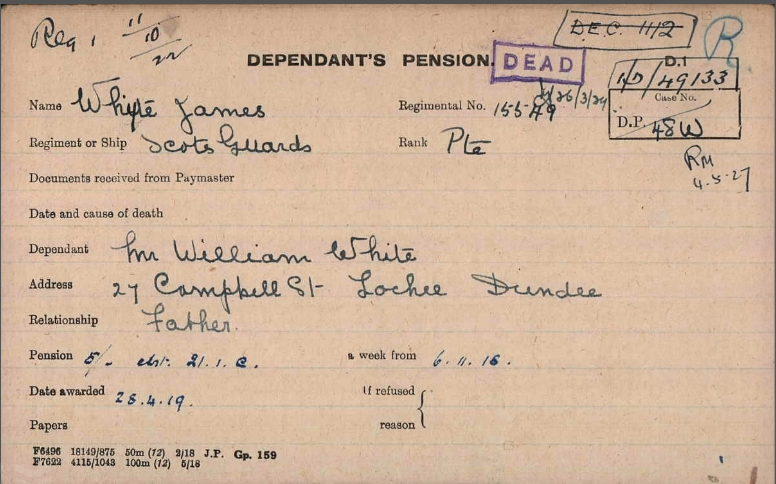 Reg 1 11/10/22
DEC. 11/2
R
DEPENDANT'S PENSION.
DEAD
26/3/29
D.1
1/D/49133
Case No.
D.P. 48W
RM
4.5.27
Name Whyte James Regimental No. 15549
Regiment or Ship Scots Guards Rank Pte
Documents received from Paymaster
Date and cause of death
Dependant Mr William White
Address 27 Campbell St Lochee Dundee
Relationship Father.
Pension 5/- 21.1.c. a week from 6.11.18.
Date awarded 28.4.19. If refused
Papers reason
F6496 18149/875 50m (12) 2/18 J.P. Gp. 159
F7622 4115/1043 100m (12) 5/18